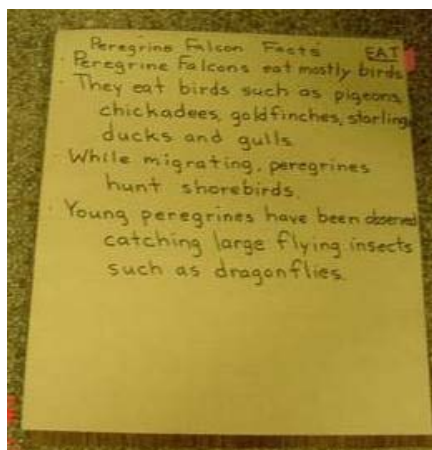 Peregrine Falcon Facts EAT
· Peregrine Falcons eat mostly birds
· They eat birds such as pigeons,
chickadees, goldfinches, starlings
ducks and gulls.
· While migrating, peregrines
hunt shorebirds.
· Young peregrines have been observed
catching large flying insects
such as dragonflies.